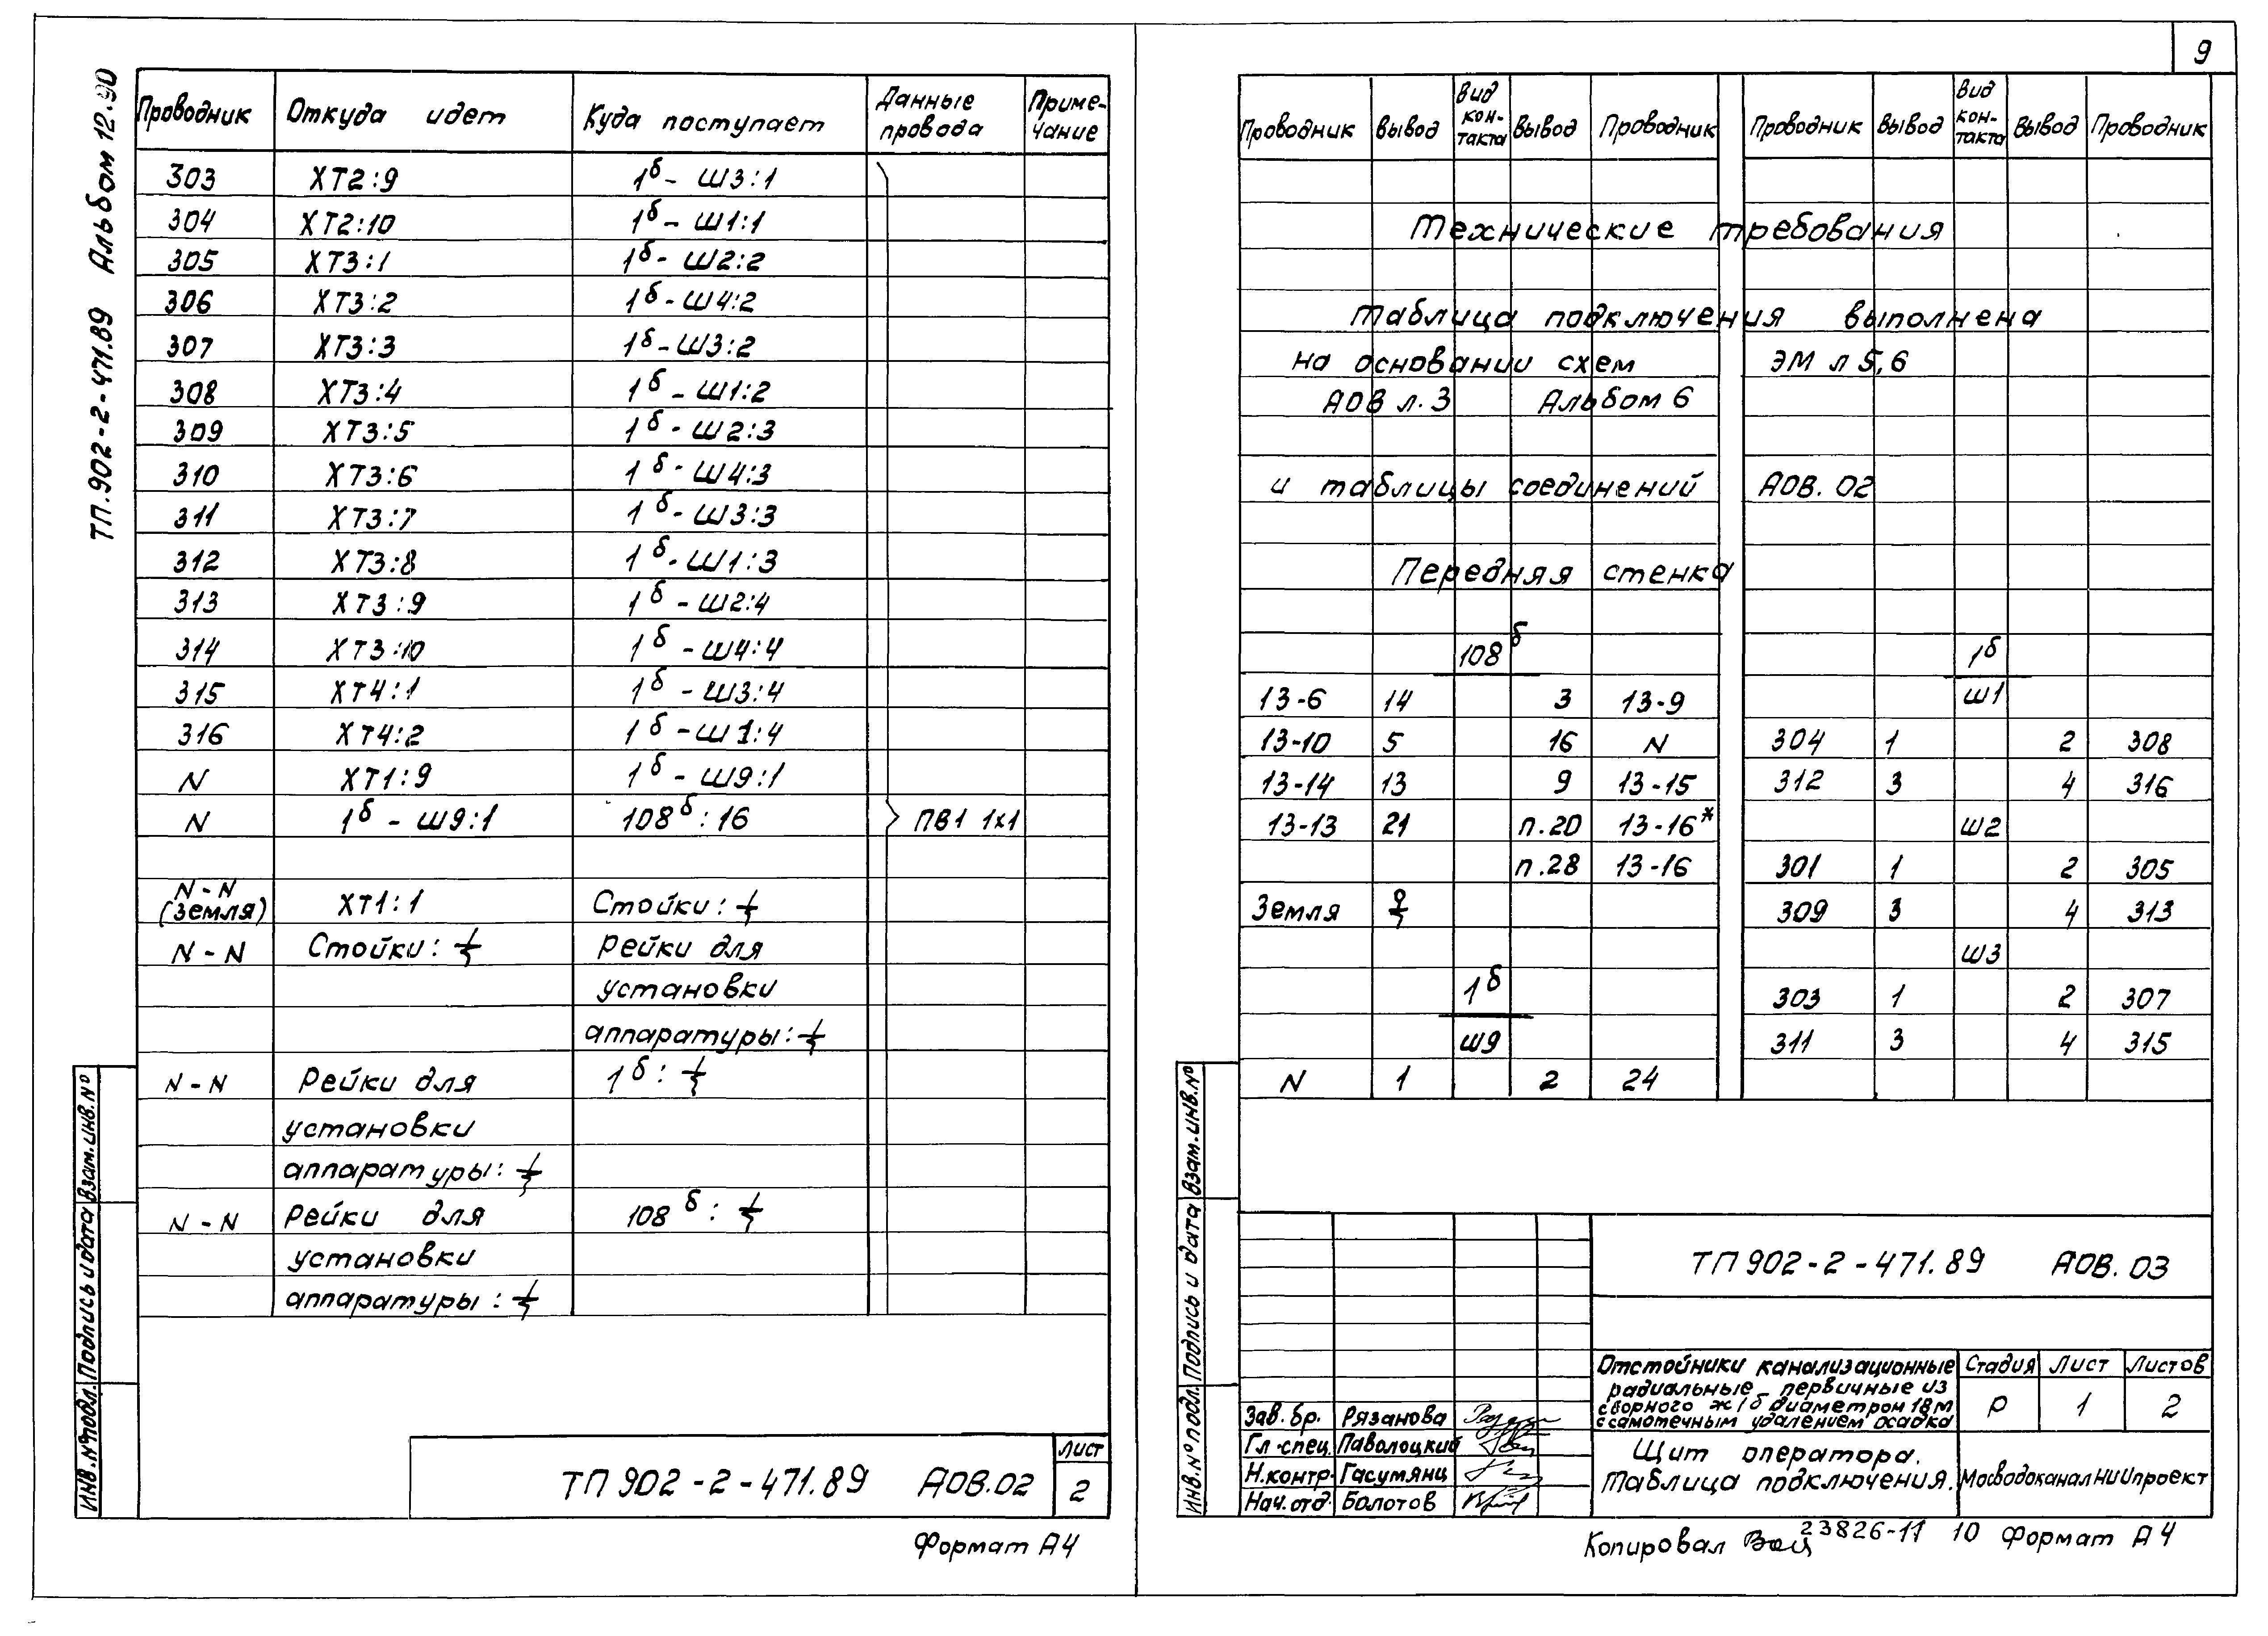 ТП.902-2-471.89 Альбом 12.90
Проводник Откуда идет Куда поступает Данные провода Приме-чание
303 ХТ2:9 1б- Ш3:1
304 ХТ2:10 1б- Ш1:1
305 ХТ3:1 1б- Ш2:2
306 ХТ3:2 1б- Ш4:2
307 ХТ3:3 1б-Ш3:2
308 ХТ3:4 1б - Ш1:2
309 ХТ3:5 1б - Ш2:3
310 ХТ3:6 1б- Ш4:3
311 ХТ3:7 1б- Ш3:3
312 ХТ3:8 1б- Ш1:3
313 ХТ3:9 1б - Ш2:4
314 ХТ3:10 1б - Ш4:4
315 ХТ4:1 1б - Ш3:4
316 ХТ4:2 1б - Ш1:4
N ХТ1:9 1б - Ш9:1
N 1б - Ш9:1 108б:16 ПВ1 1х1
N-N
(Земля) ХТ1:1 Стойки: ⏚
N-N Стойки: ⏚ Рейки для
установки
аппаратуры: ⏚
N-N Рейки для 1б: ⏚
установки
аппаратуры: ⏚
N-N Рейки для 108б: ⏚
установки
аппаратуры: ⏚
Инв.№подл. Подпись и дата Взам.инв.№
ТП 902-2-471.89 АОВ.02
Лист
2
Формат А4
9
Проводник Вывод Вид кон-такта Вывод Проводник Проводник Вывод Вид кон-такта Вывод Проводник
Технические требования
Таблица подключения выполнена
на основании схем ЭМ л 5,6
АОВ л.3 Альбом 6
и таблицы соединений АОВ.02
Передняя стенка
108б 1б
13-6 14 3 13-9 Ш1
13-10 5 16 N 304 1 2 308
13-14 13 9 13-15 312 3 4 316
13-13 21 п.20 13-16* Ш2
п.28 13-16 301 1 2 305
Земля ⏚ 309 3 4 313
Ш3
1б 303 1 2 307
Ш9 311 3 4 315
N 1 2 24
Инв.№подл. Подпись и дата Взам.инв.№
ТП 902-2-471.89 АОВ.03
Отстойники канализационные
радиальные первичные из
сборного ж/б диаметром 18м
с самотечным удалением осадка
Стадия Лист Листов
Р 1 2
Зав.бр. Рязанова
Гл.спец. Паволоцкий
Н.контр. Гасумянц
Нач.отд. Болотов
Щит оператора.
Таблица подключения.
МосводоканалНИИпроект
Копировал 23826-11 10 Формат А4